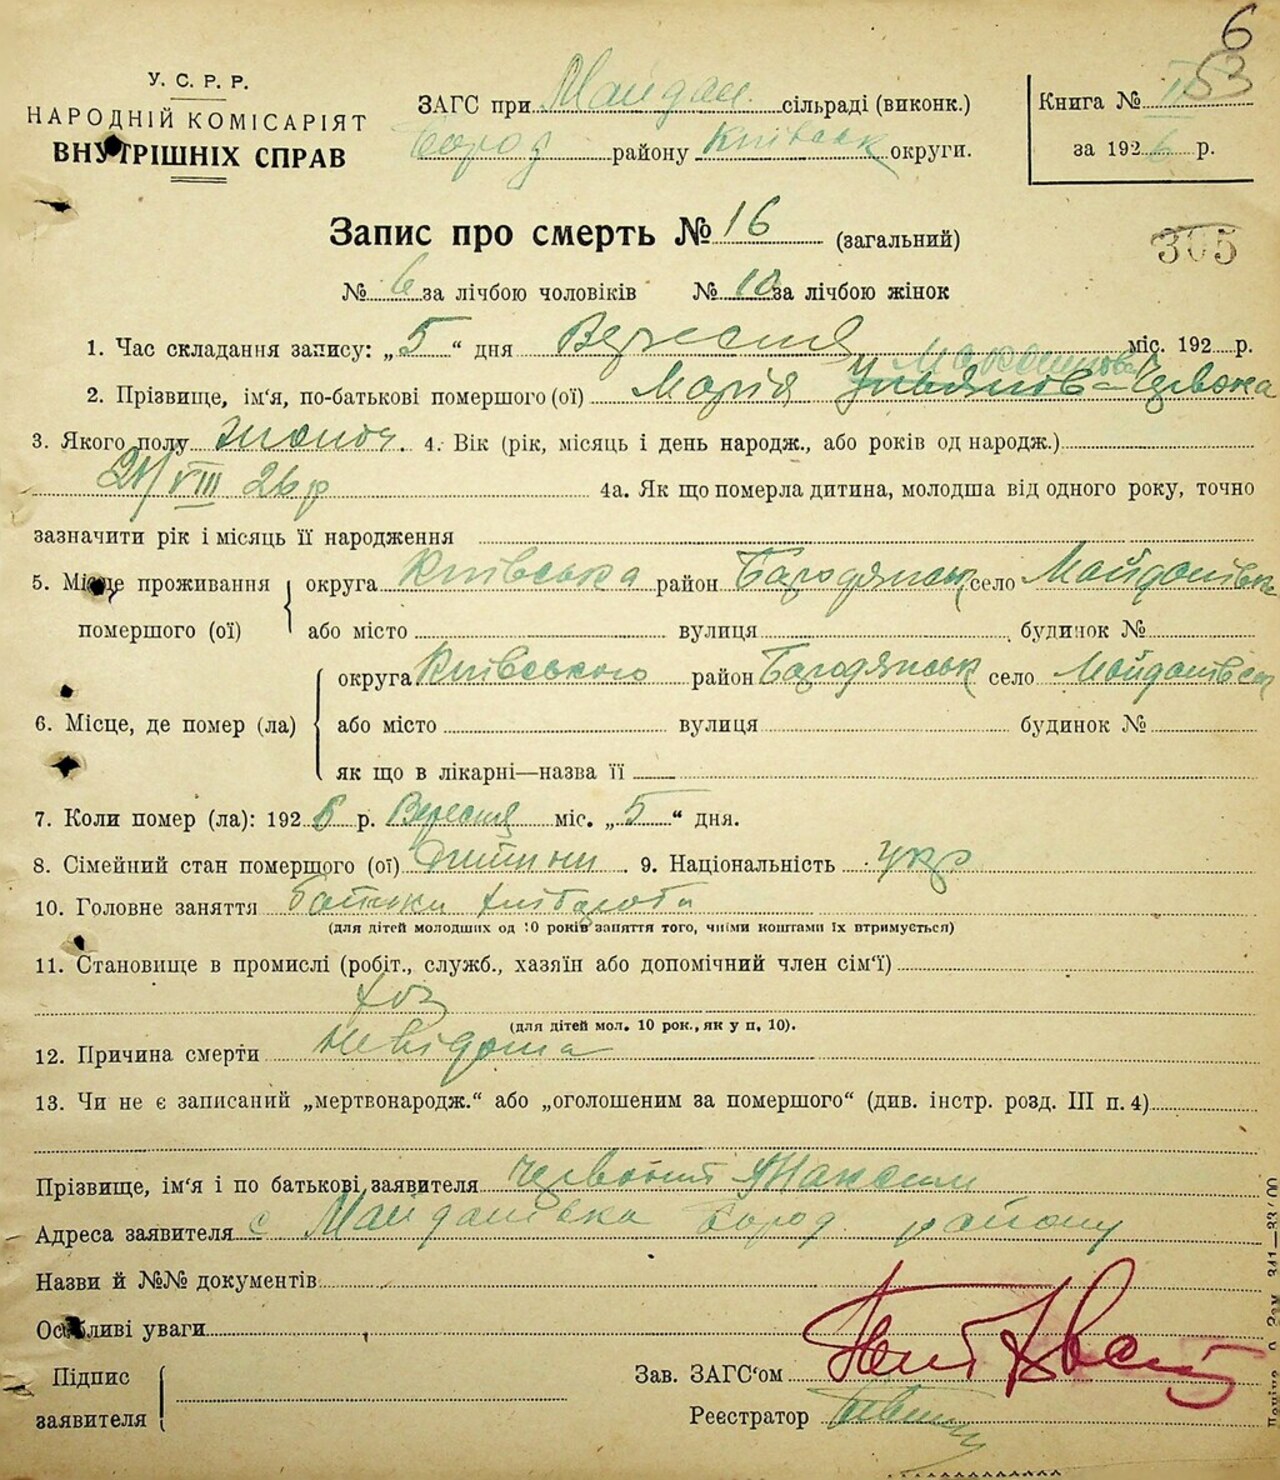 6
53
У. С. Р. Р.
НАРОДНІЙ КОМІСАРІЯТ
ВНУТРІШНІХ СПРАВ
ЗАГС при Майдан. сільраді (виконк.)
Бород району Київськ округи.
Книга № II
за 1926 р.
Запис про смерть № 16 (загальний)
305
№ 6 за лічбою чоловіків № 10 за лічбою жінок
1. Час складання запису: „5“ дня Вересня міс. 192 р.
Максимова
2. Прізвище, ім‘я, по-батькові помершого (ої) Марія Ульянов-Червона
3. Якого полу жіноч. 4. Вік (рік, місяць і день народж., або років од народж.)
21/VIII 26 р 4а. Як що померла дитина, молодша від одного року, точно
зазначити рік і місяць її народження
5. Місце проживання помершого (ої) округа Київська район Бородянськ село Майданівка
або місто вулиця будинок №
6. Місце, де помер (ла) округа Київською район Бородянськ село Майданівка
або місто вулиця будинок №
як що в лікарні—назва її
7. Коли помер (ла): 1926 р. Вересня міс. „5“ дня.
8. Сімейний стан помершого (ої) Дитина. 9. Національність укр
10. Головне заняття батьки хлібороби
(для дітей молодших од 10 років заняття того, чиїми коштами їх втримується)
11. Становище в промислі (робіт., служб., хазяїн або допомічний член сім‘ї)
хоз
(для дітей мол. 10 рок., як у п. 10).
12. Причина смерти невідома
13. Чи не є записаний „мертвонародж.“ або „оголошеним за помершого“ (див. інстр. розд. III п. 4)
Прізвище, ім‘я і по батькові заявителя Червоний Максим
Адреса заявителя с Майданівка Бород. району
Назви й №№ документів
Особливі уваги
Підпис заявителя
Зав. ЗАГС‘ом
Реєстратор